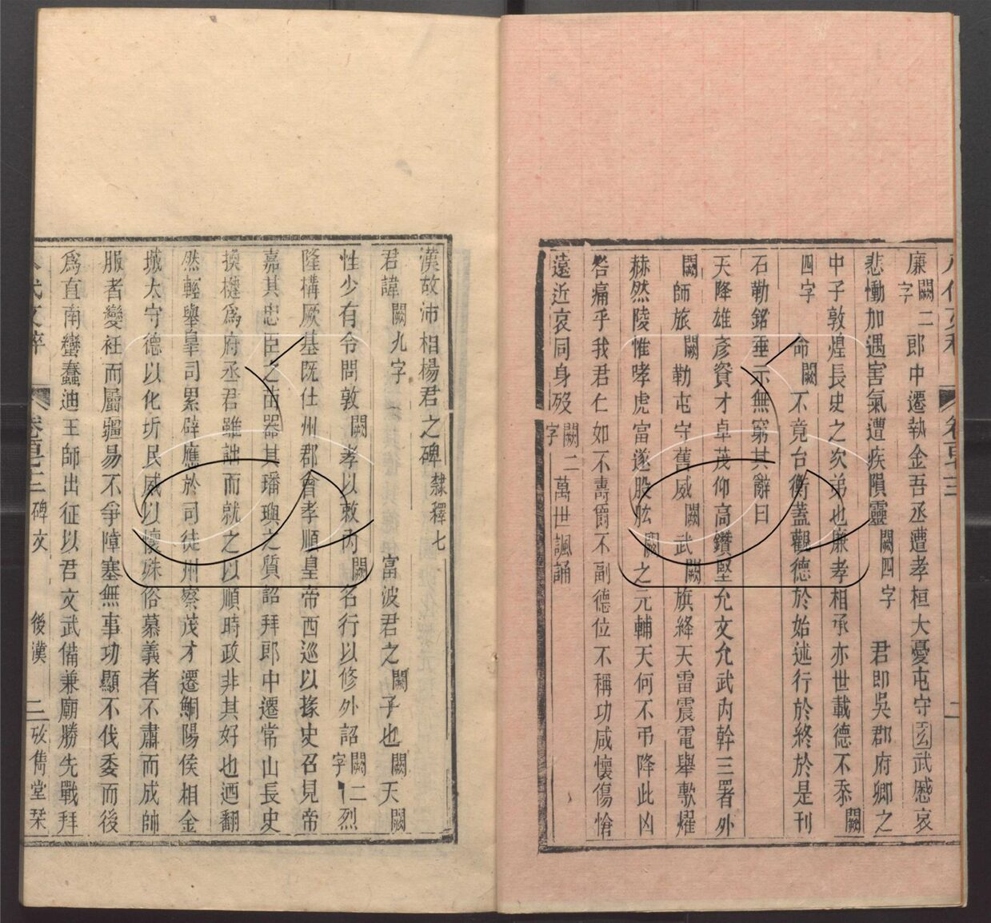 廉闕二字郎中遷執金吾丞遭孝桓大憂屯守玄武慼哀
悲慟加遇害氣遭疾隕靈闕四字君即吳郡府卿之
中子敦煌長史之次弟也廉孝相承亦世載德不忝闕
四字命闕不竟台衡蓋觀德於始述行於終於是刊
石勒銘垂示無窮其辭曰
天降雄彥資才卓茂仰高鑽堅允文允武內幹三署外
闕師旅闕勒屯守舊威闕武闕旗絳天雷震電舉敷燿
赫然陵惟哮虎富遂股肱闕之元輔天何不弔降此凶
咎痛乎我君仁如不壽爵不副德位不稱功咸懷傷愴
遠近哀同身歿闕二字萬世諷誦
漢故沛相楊君之碑隸釋七
君諱闕九字富波君之闕子也闕天闕
性少有令問敦闕孝以敦內闕名行以修外詔闕二字烈
隆構厥基既仕州郡會孝順皇帝西巡以掾史召見帝
嘉其忠臣之苗器其璠璵之質詔拜郎中遷常山長史
換楗爲府丞君雖詘而就之以順時政非其好也迺翻
然輕舉皐司累辟應於司徒州察茂才遷鮦陽侯相金
城太守德以化圻民威以懷殊俗慕義者不肅而成帥
服者變衽而屬疆易不爭障塞無事功顯不伐委而後
爲直南蠻蠢迪王師出征以君文武備兼廟勝先戰拜
八代文粹 碑文 後漢 二 攷雋堂栞